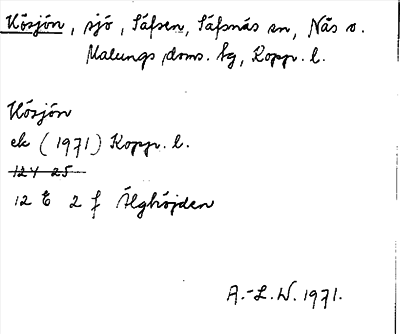 Hösjön, sjö, Säfsen, Säfsnäs sn, Nås o.
Malungs doms. tg, Kopp. l.
Hösjön
ek (1971) Kopp. l.
12 Y 25
12 E 2 f Älghöjden
A.-L. W. 1971.